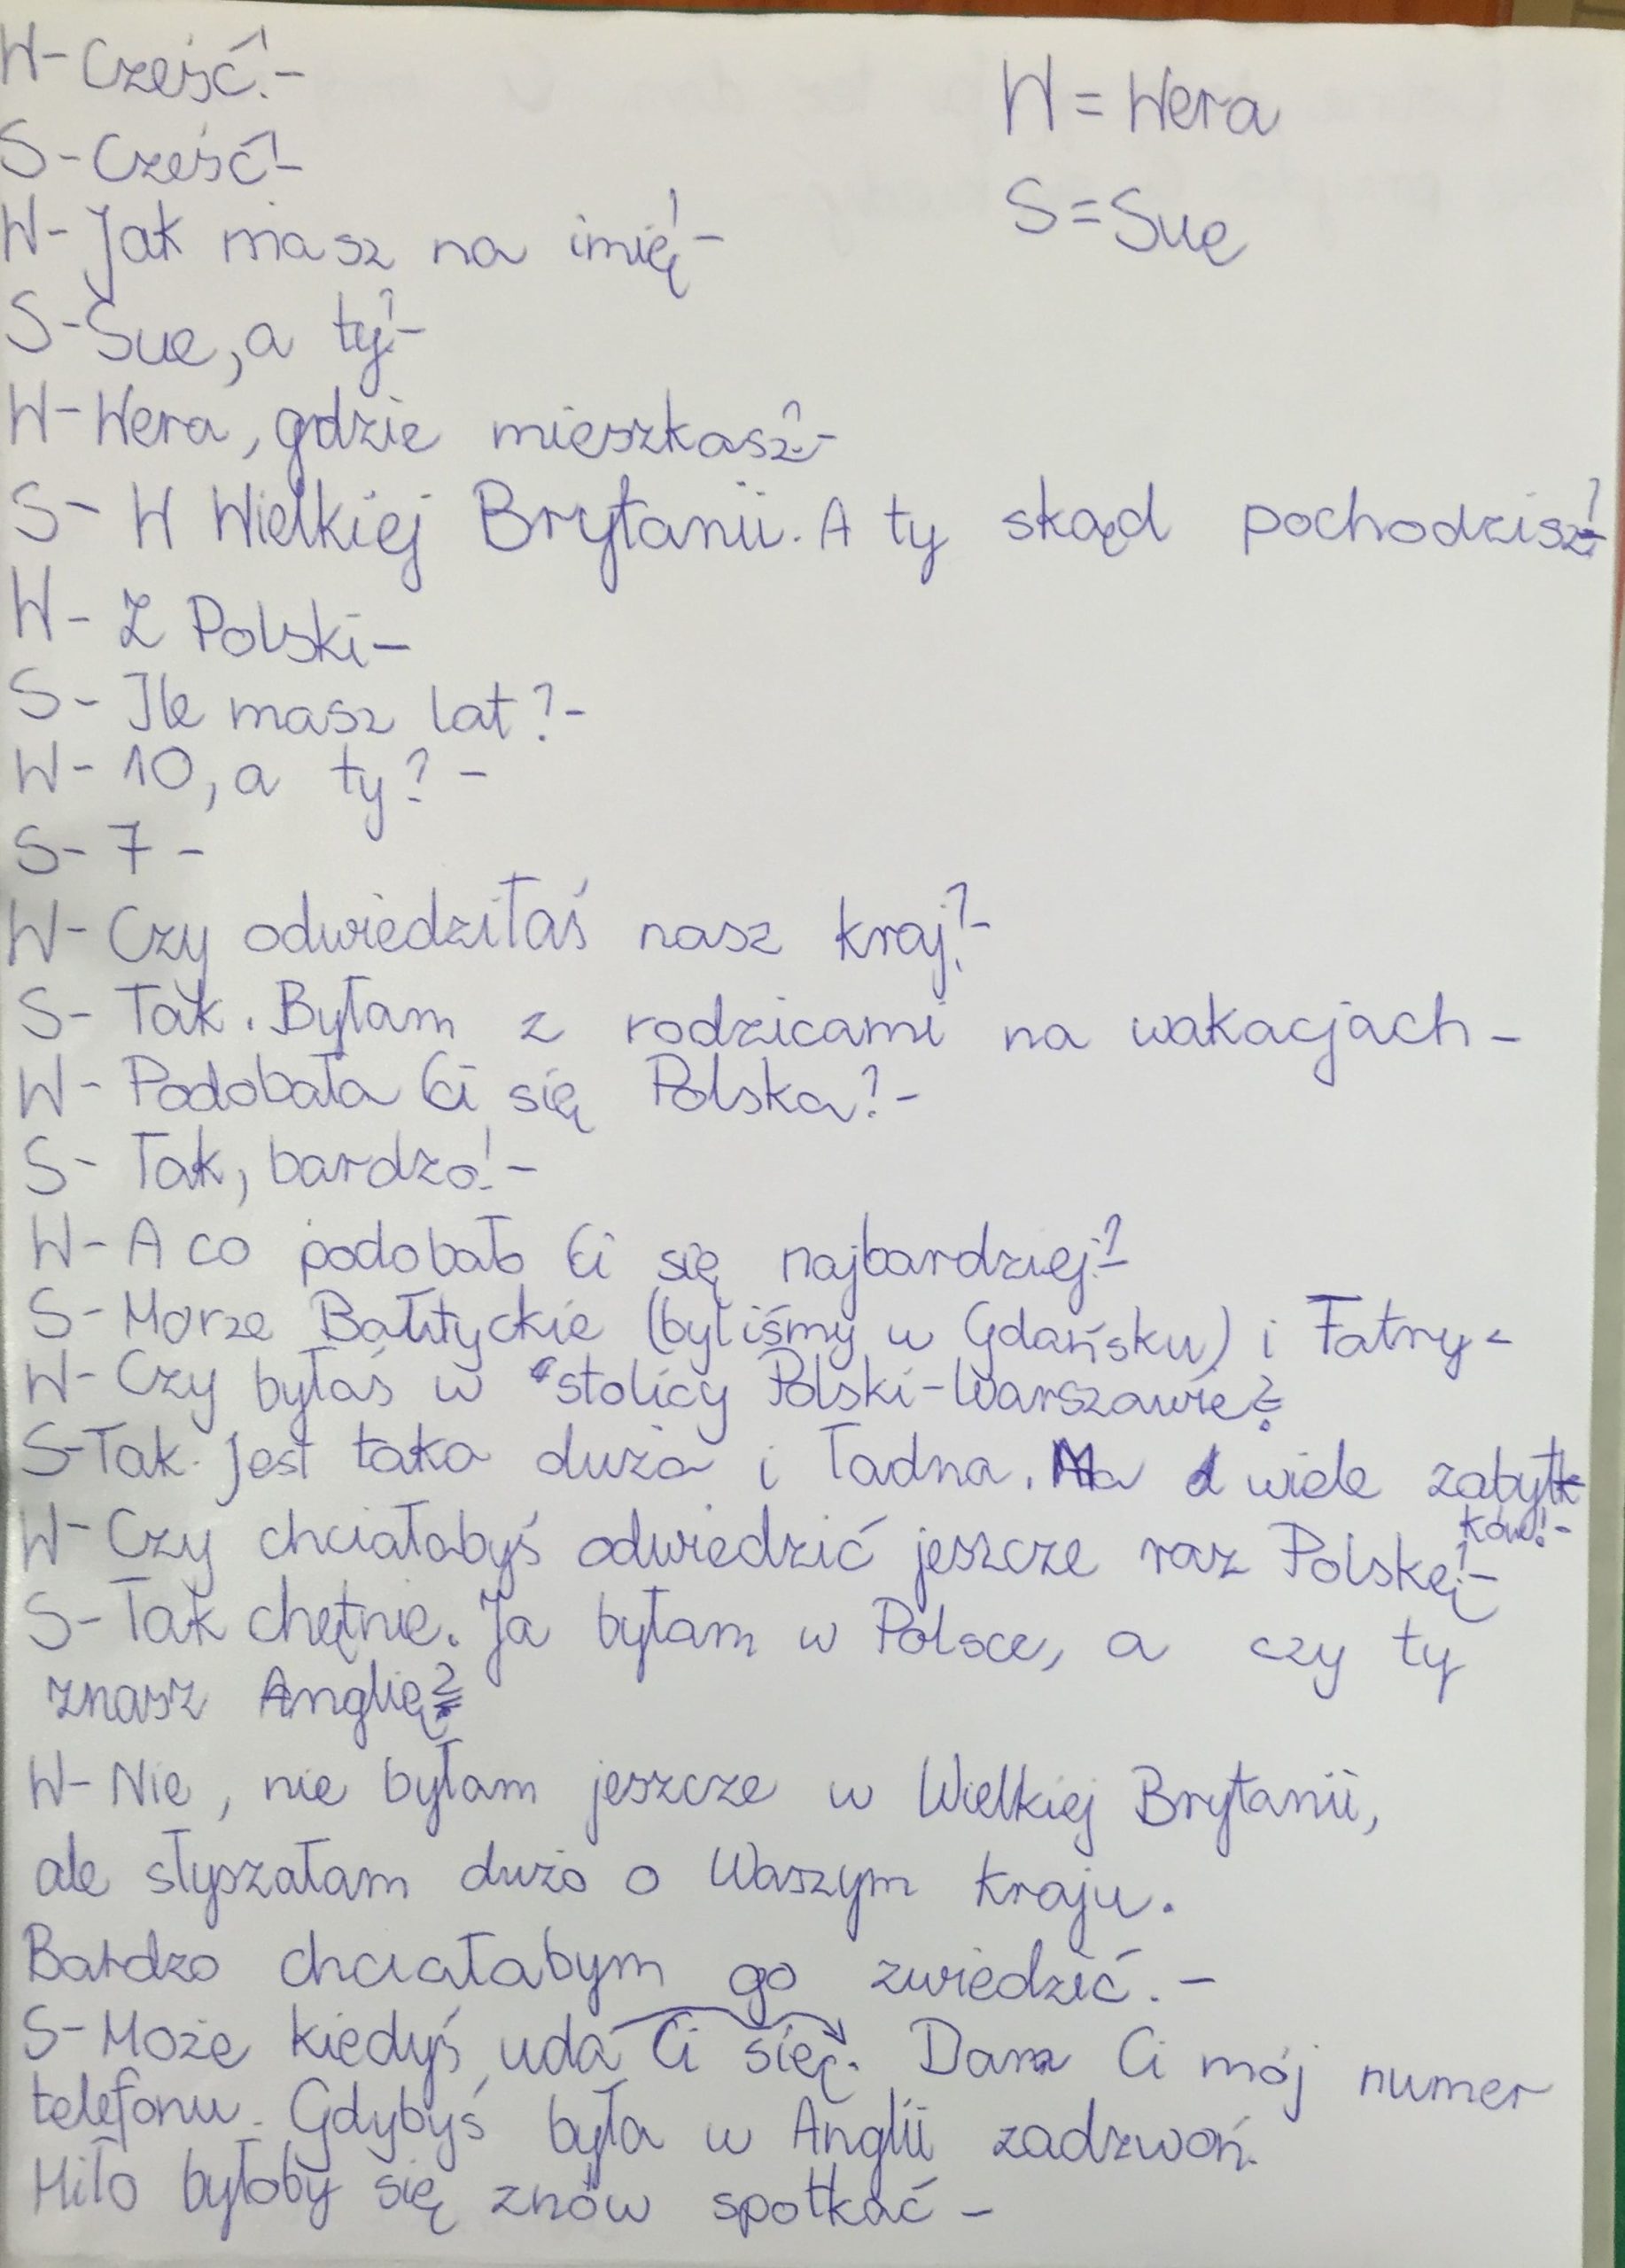 W- Cześć!-
W = Wera
S- Cześć!-
S = Sue
W- Jak masz na imię!-
S- Sue, a ty?-
W- Wera, gdzie mieszkasz?-
S- W Wielkiej Brytanii. A ty skąd pochodzisz?-
W- Z Polski-
S- Ile masz lat?-
W- 10, a ty? -
S- 7 -
W- Czy odwiedziłaś nasz kraj?-
S- Tak. Byłam z rodzicami na wakacjach -
W- Podobała Ci się Polska?-
S- Tak, bardzo!-
W- A co podobało Ci się najbardziej?-
S- Morze Bałtyckie (byliśmy w Gdańsku) i Tatry-
W- Czy byłaś w stolicy Polski-Warszawie?
S- Tak. Jest taka duża i ładna. Ma wiele zabyt-
ków!-
W- Czy chciałabyś odwiedzić jeszcze raz Polskę!-
S- Tak chętnie. Ja byłam w Polsce, a czy ty
znasz Anglię?
W- Nie, nie byłam jeszcze w Wielkiej Brytanii,
ale słyszałam dużo o Waszym kraju.
Bardzo chciałabym go zwiedzić.-
S- Może kiedyś uda Ci się. Dam Ci mój numer
telefonu. Gdybyś była w Anglii zadzwoń.
Miło byłoby się znów spotkać -